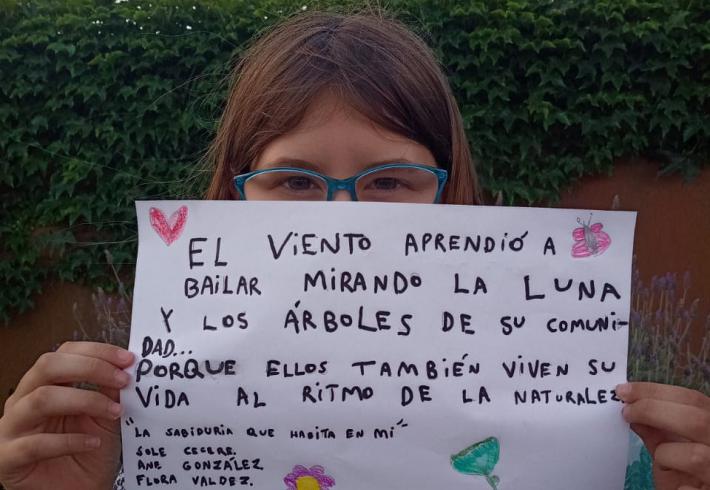 EL VIENTO APRENDIÓ A
BAILAR MIRANDO LA LUNA
Y LOS ÁRBOLES DE SU COMUNI-
DAD...
PORQUE ELLOS TAMBIÉN VIVEN SU
VIDA AL RITMO DE LA NATURALEZ
"LA SABIDURIA QUE HABITA EN MI"
SOLE CECERE.
ANE GONZÁLEZ.
FLORA VALDEZ.